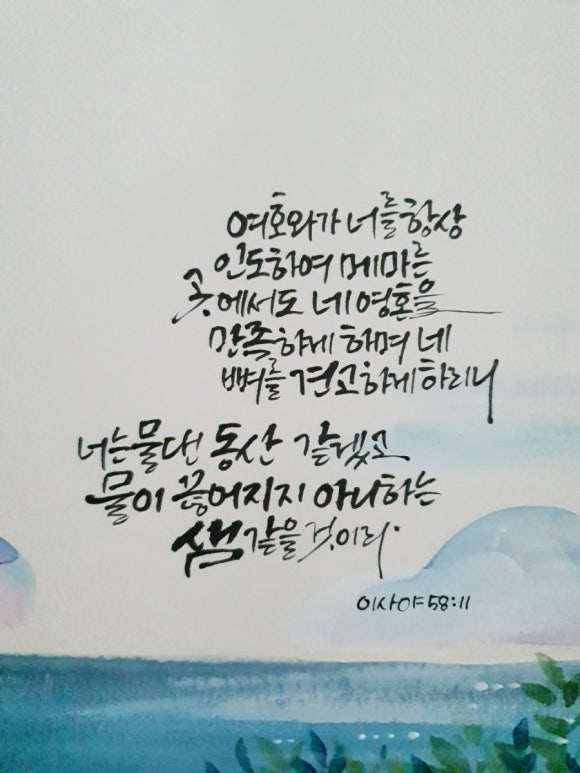 여호와가 너를 항상
인도하여 메마른
곳에서도 네 영혼을
만족하게 하며 네
뼈를 견고하게 하리니
너는 물댄 동산 같겠고
물이 끊어지지 아니하는
샘 같을 것이라.
이사야 58:11